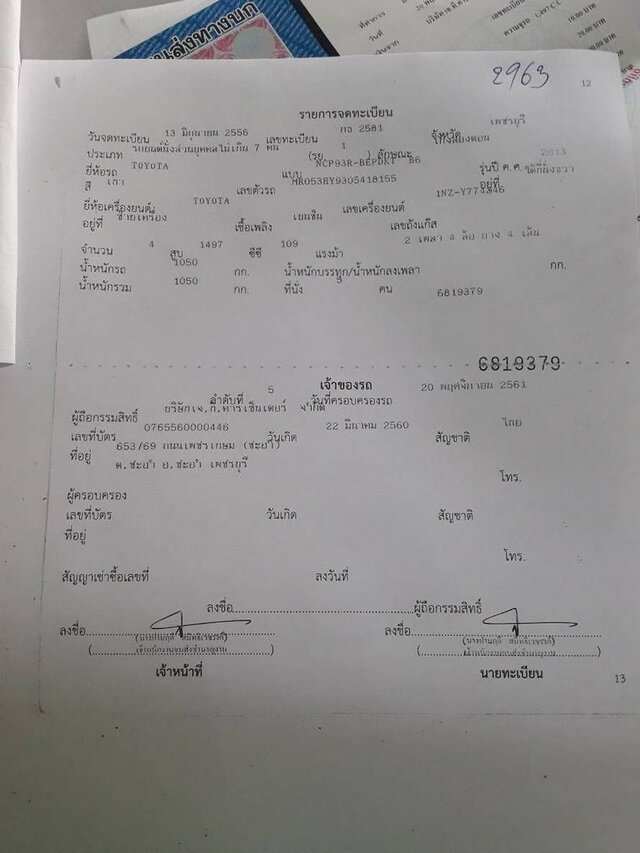 นส่งทางบก
2963
12
รายการจดทะเบียน
วันจดทะเบียน 13 มิถุนายน 2556 เลขทะเบียน กธ 2581 จังหวัด เพชรบุรี
ประเภท รถยนต์นั่งส่วนบุคคลไม่เกิน 7 คน (รย 1 ) ลักษณะ เก๋งสองตอน
ยี่ห้อรถ TOYOTA แบบ NCP93R-BEPDKT B6 รุ่นปี ค.ศ. 2013
สี เทา เลขตัวรถ MR053HY9305418155 อยู่ที่
ยี่ห้อเครื่องยนต์ TOYOTA เลขเครื่องยนต์ 1NZ-
อยู่ที่ ซ้ายเครื่อง เชื้อเพลิง เบนซิน เลขถังแก๊ส
จำนวน 4 สูบ 1497 ซีซี 109 แรงม้า 2 เพลา 4 ล้อ ยาง 4 เส้น
น้ำหนักรถ 1050 กก. น้ำหนักบรรทุก/น้ำหนักลงเพลา กก.
น้ำหนักรวม 1050 กก. ที่นั่ง คน 6819379
6819379
เจ้าของรถ
ลำดับที่ 5 วันที่ครอบครองรถ 20 พฤศจิกายน 2561
ผู้ถือกรรมสิทธิ์ บริษัทเจ.ที.คาร์เซ็นเตอร์ จำกัด
เลขที่บัตร 0765560000446 วันเกิด 22 มีนาคม 2560 สัญชาติ ไทย
ที่อยู่ 653/69 ถนนเพชรเกษม (ชะอำ)
ต.ชะอำ อ.ชะอำ เพชรบุรี
โทร.
ผู้ครอบครอง
เลขที่บัตร วันเกิด สัญชาติ
ที่อยู่
โทร.
สัญญาเช่าซื้อเลขที่ ลงวันที่
ลงชื่อ ผู้ถือกรรมสิทธิ์
ลงชื่อ ลงชื่อ
เจ้าหน้าที่ นายทะเบียน
13